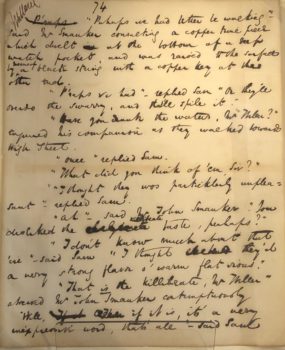 74
"Perhaps we had better be walking"
said Mr Smauker consulting a copper time piece
which dwelt at the bottom of a deep
watch pocket, and was raised to the surface
by a black string with a copper key at the
other end.
"P'raps we had" - replied Sam "or they'll
overdo the swarry, and that'll spile it"
"Have you drank the waters, Mr Weller?"
enquired his companion as they walked towards
High Street.
"Once" replied Sam.
"What did you think of 'em, Sir?"
"I thought they was particklery unplea-
sant" - replied Sam.
"Ah" - said Mr John Smauker "You
disliked the taste, perhaps?"
"I don't know much about that
'ere" - said Sam "I thought they'd
a very strong flavor o' warm flat irons."
"That is the killibeate, Mr Weller"
observed Mr John Smauker contemptuously
"Well, if it is, it's a very
inexpressive word, that's all" - said Sam